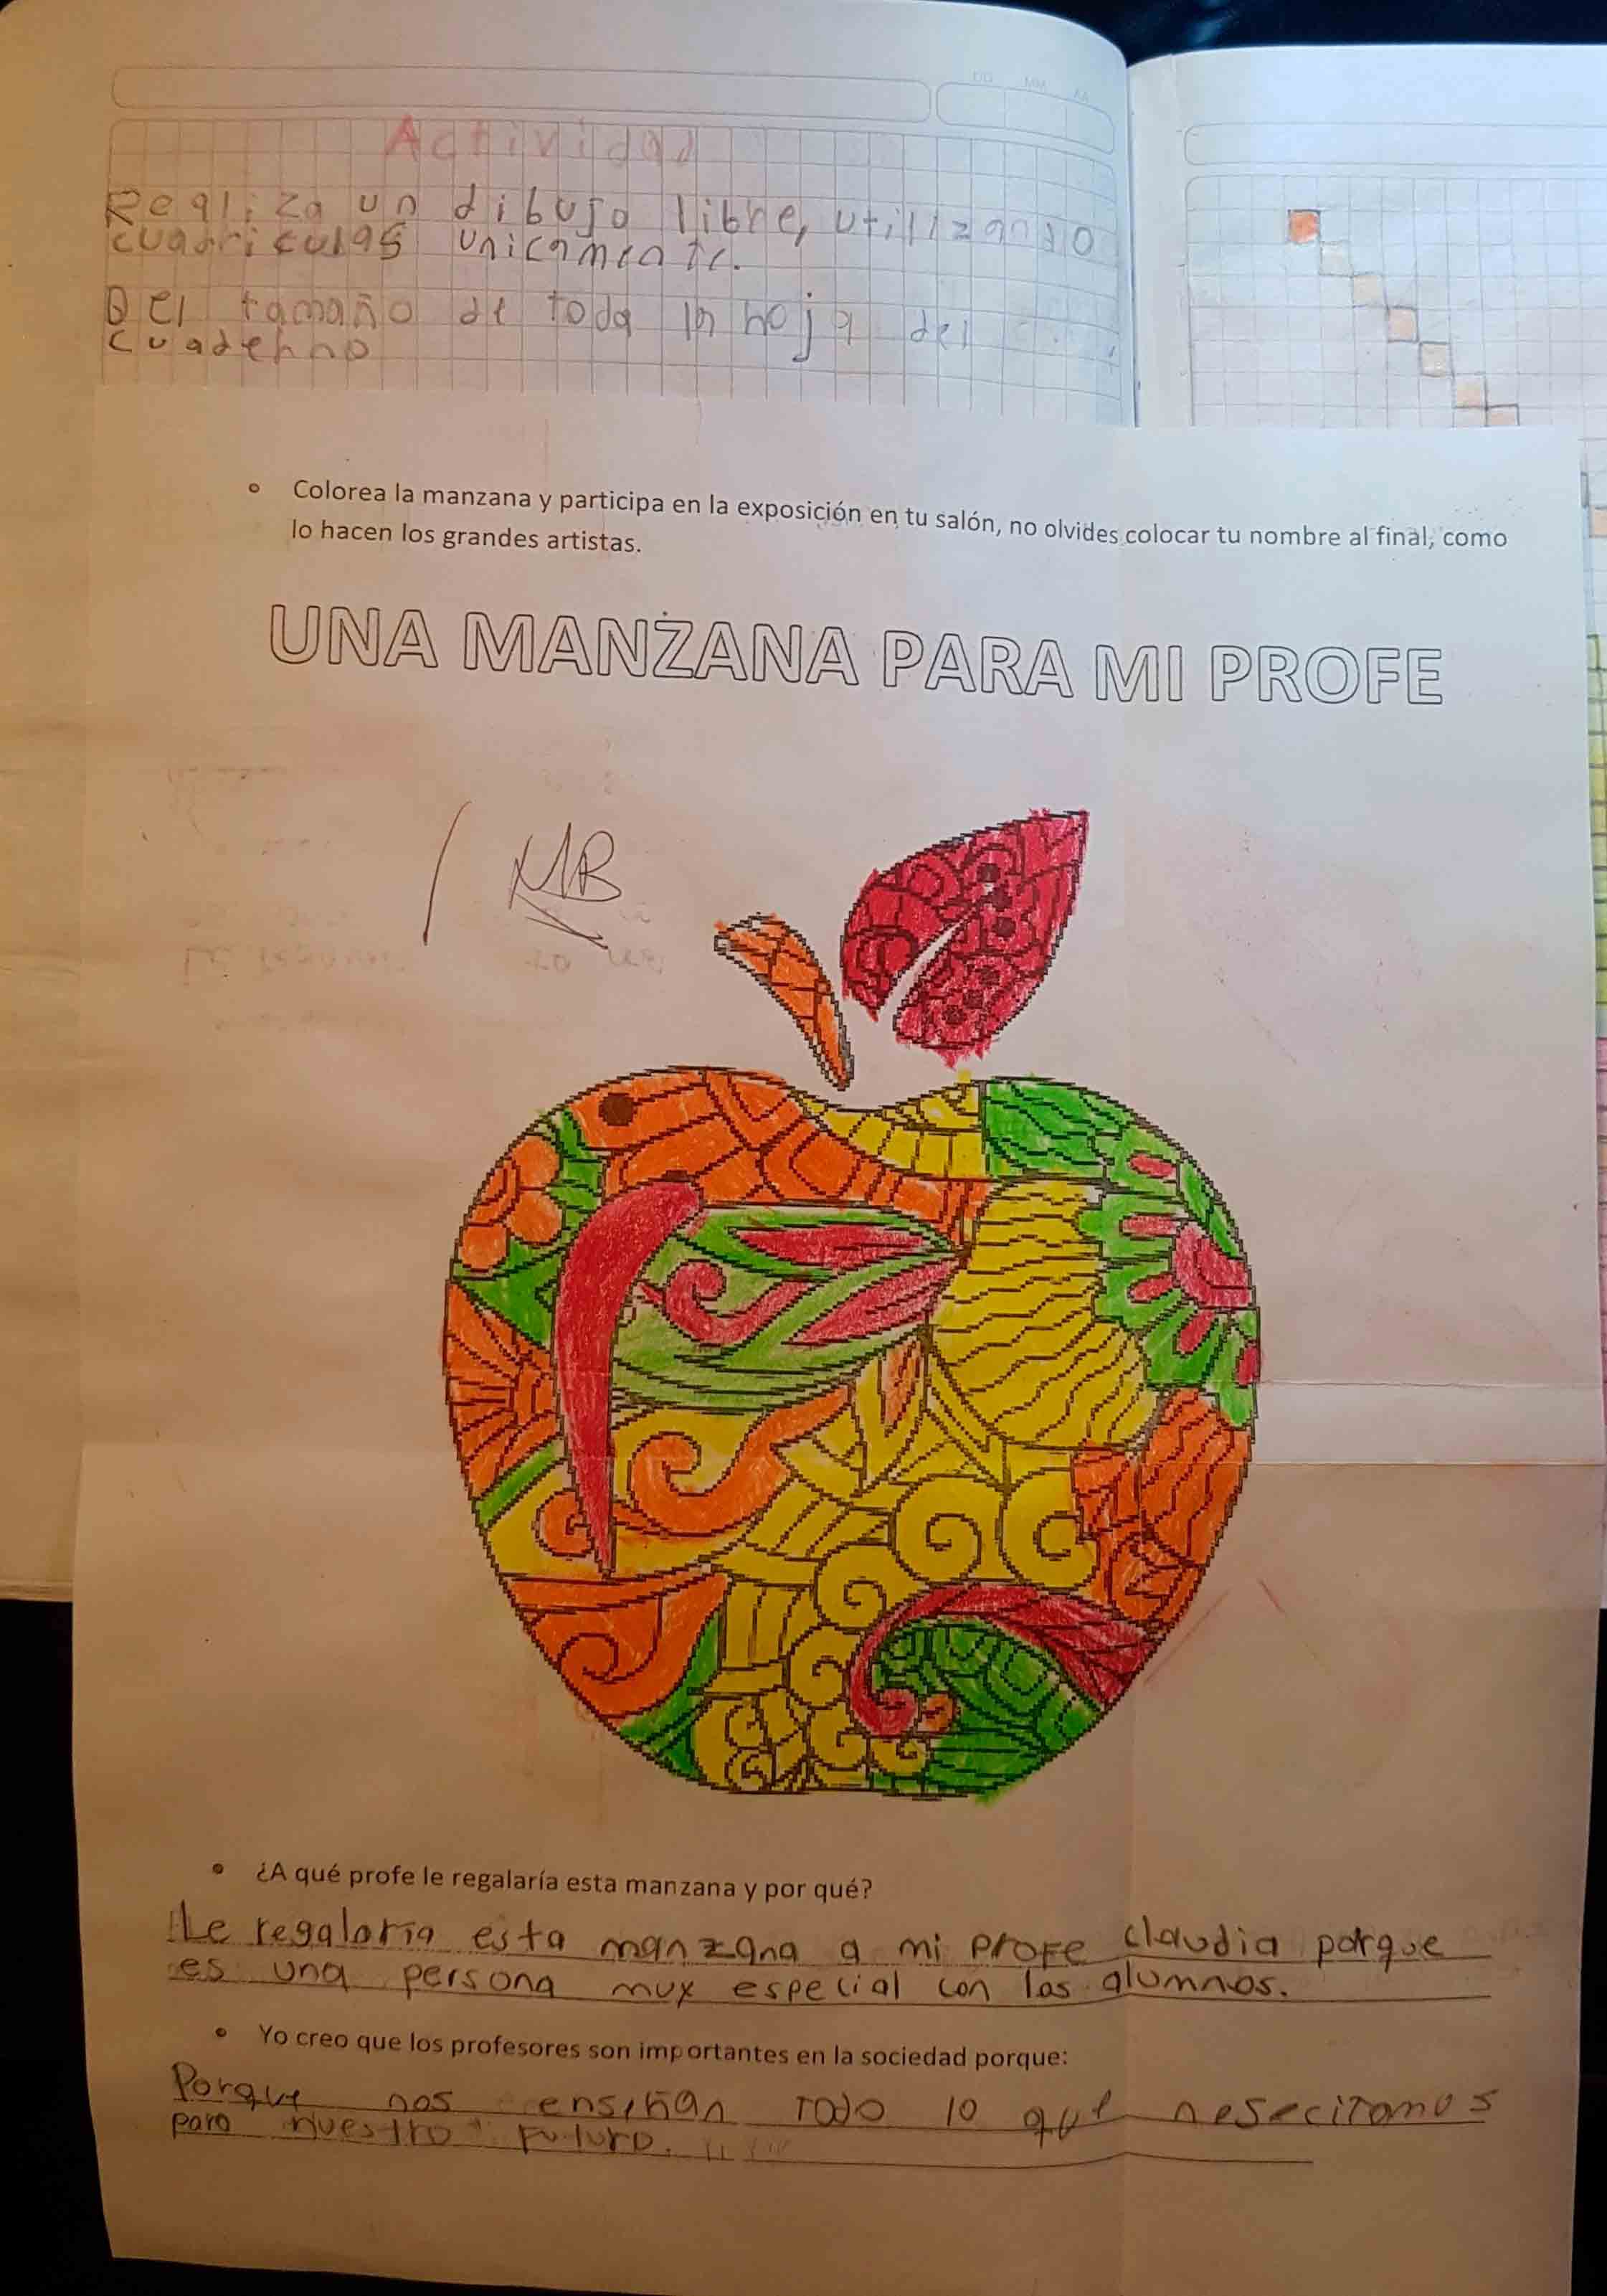 DD MM AA
Actividad
Realiza un dibujo libre, utilizando
cuadriculas unicamente.
Del tamaño de toda la hoja del
cuaderno
Colorea la manzana y participa en la exposición en tu salón, no olvides colocar tu nombre al final, como
lo hacen los grandes artistas.
UNA MANZANA PARA MI PROFE
MB
¿A qué profe le regalaría esta manzana y por qué?
Le regalaria esta manzana a mi profe claudia porque
es una persona muy especial con los alumnos.
Yo creo que los profesores son importantes en la sociedad porque:
Porque nos enseñan todo lo que nesecitamos
para nuestro futuro.